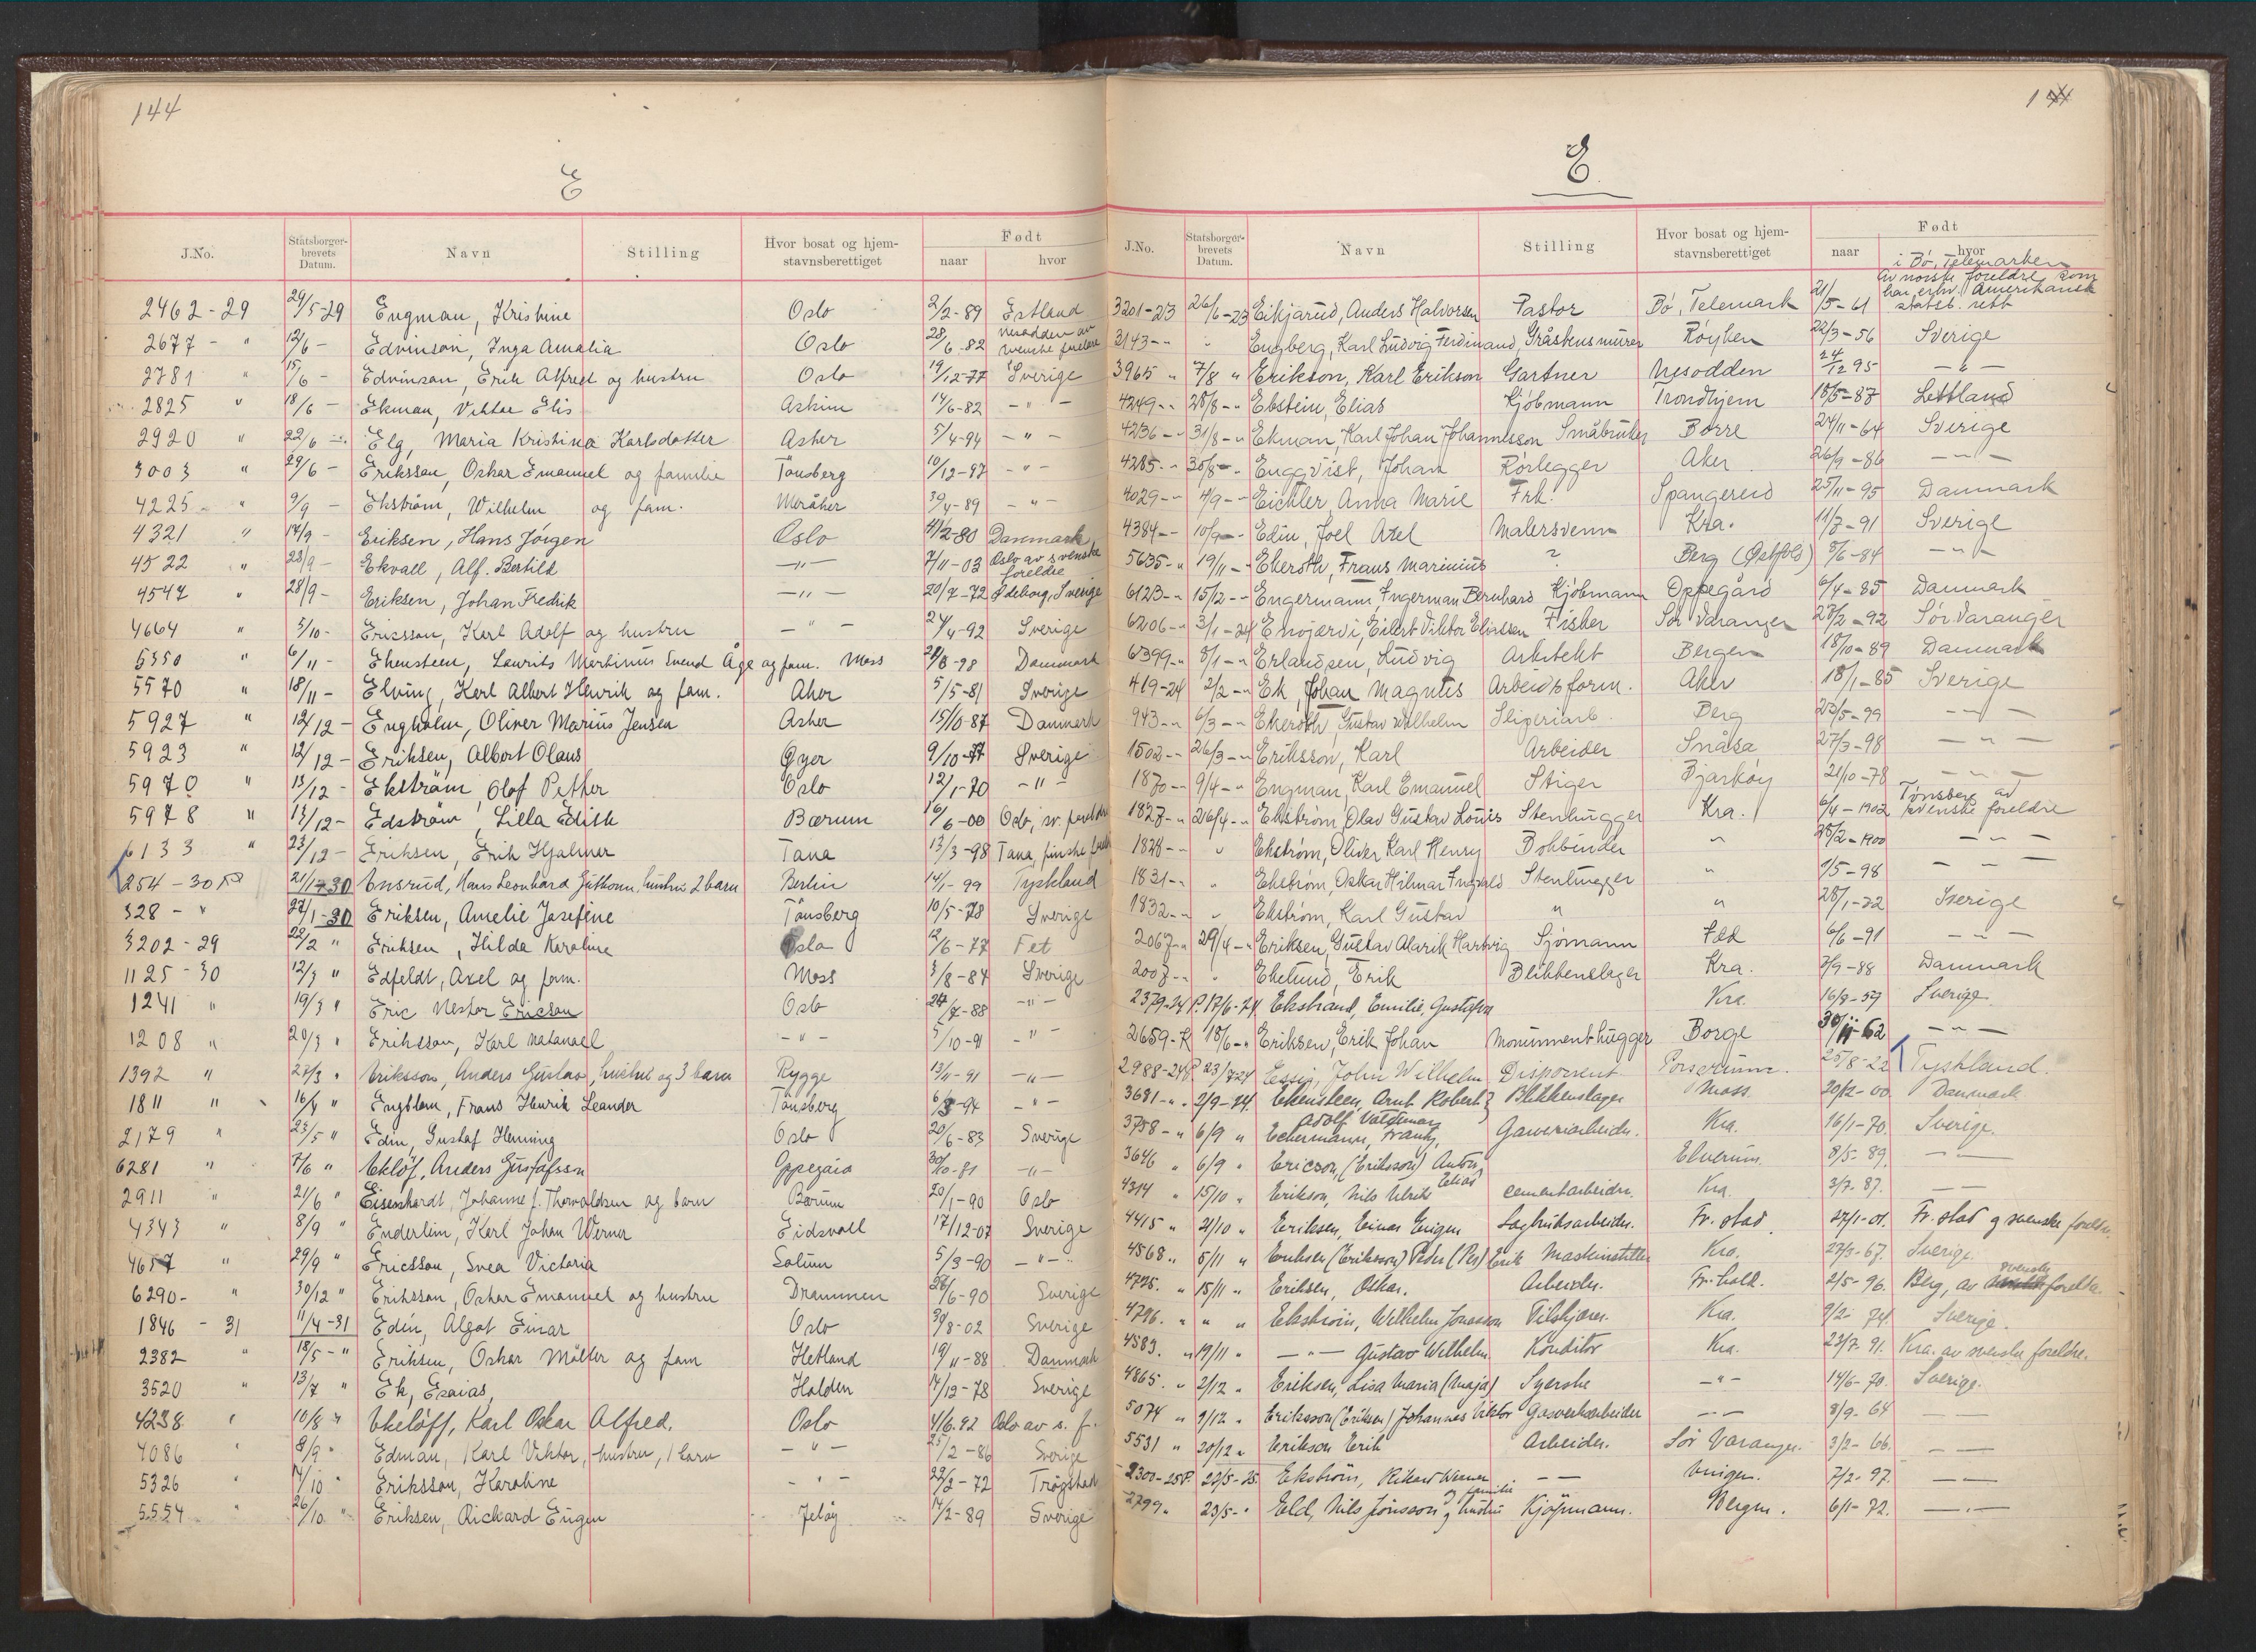 144
E
J.No. Statsborger-brevets Datum. Navn Stilling Hvor bosat og hjem-stavnsberettiget Født naar hvor
2462 - 29 29/5-29 Engman, Kristine Oslo 2/2-89 Estland
2677 - " 12/6 - Edvinson, Inga Amalia Oslo 28/6-82 Nesodden av svenske foreldre
2781 " 15/6 - Edvinson, Erik Alfred og hustru Oslo 19/12-77 Sverige
2825 " 18/6 - Ekman, Viktor Elis Askim 14/6-82 - " -
2920 " 22/6 - Elg, Maria Kristina Karlsdatter Asker 5/4-94 - " -
3003 " 29/6 - Eriksson, Oskar Emanuel og familie Tønsberg 10/12-97 - " -
4225 " 9/9 - Ekström, Wilhelm og fam. Meråker 30/4-89 - " -
4321 " 14/9 - Eriksen, Hans Jörgen Oslo 4/2-80 Danmark
4522 " 23/9 - Ekvall, Alf. Bertild - " - 7/11-03 Oslo av svenske foreldre
4547 " 28/9 - Eriksen, Johan Fredrik - " - 20/7-72 Ødeborg, Sverige
4664 " 5/10 - Ericsson, Karl Adolf og hustru - " - 24/4-92 Sverige
5350 " 6/11 - Ekensteen, Laurits Martinus Svend Åge og fam. Moss 21/8-98 Danmark
5570 " 18/11 - Elving, Karl Albert Henrik og fam. Aker 5/5-81 Sverige
5927 " 12/12 - Engholm, Oliver Marius Jensen Asker 15/10-87 Danmark
5923 " 12/12 - Eriksen, Albert Olaus Øyer 9/10-77 Sverige
5970 " 13/12 - Ekström, Olof Petter Oslo 12/1-70 - " -
5978 " 13/12 - Edström, Lilla Edith Bærum 16/6-00 Oslo, sv. foreldre
6133 " 23/12 - Eriksen, Erik Hjalmar Tana 13/3-98 Tana, finske foreldre
254 - 30 21/1-30 Ensrud, Hans Leonhard Guttorm, hustru, 2 barn Berlin 14/1-99 Tyskland
328 - " 27/1-30 Eriksen, Amelie Josefine Tønsberg 10/5-78 Sverige
3202 - 29 22/2 " Eriksen, Hilda Karoline Oslo 12/6-77 Fet
1125 - 30 12/3 " Edfeldt, Axel og fam. Moss 3/8-84 Sverige
1241 " 19/3 " Eric Nestor Ericson Oslo 24/7-88 - " -
1208 " 20/3 " Eriksson, Karl Natanael - " - 5/10-91 - " -
1392 " 27/3 " Eriksson, Anders Gustav, hustru og 3 barn Rygge 13/4-91 - " -
1811 " 16/4 " Engblom, Frans Henrik Leander Tønsberg 6/3-94 - " -
2179 " 23/5 " Edin, Gustaf Henning Oslo 20/6-83 Sverige
6281 " 7/6 " Eklöf, Anders Gustafsson Oppegård 30/10-81 - " -
2911 " 21/6 " Eisenhardt, Johanne f. Thorvaldsen og barn Bærum 20/1-90 Oslo
4343 " 8/9 " Enderlein, Karl Johan Werner Eidsvoll 17/12-07 Sverige
4657 " 29/9 " Ericsson, Svea Victoria Solum 5/3-90 - " -
6290 - " 30/12 " Eriksson, Oskar Emanuel og hustru Drammen 26/6-90 Sverige
1846 - 31 11/4-31 Edin, Algot Einar Oslo 30/8-02 Sverige
2382 " 18/5 - " Eriksen, Oskar Møller og fam Hetland 19/11-88 Danmark
3520 " 13/7 " Ek, Esaias, Halden 14/12-78 Sverige
4238 " 10/8 " Ekelöff, Karl Oskar Alfred. Oslo 4/6.92 Oslo av s. f.
4086 " 8/9 " Edman, Karl Viktor, hustru, 1 barn - " - 25/2-86 Sverige
5326 " 14/10 " Eriksson, Karoline - " - 22/2-72 Trøgstad
5554 " 26/10 " Eriksen, Rickard Eugen Jeløy 14/2-89 Sverige
E
J.No. Statsborger-brevets Datum. Navn Stilling Hvor bosat og hjem-stavnsberettiget Født naar hvor
3201-23 26/6-23 Eikjarud, Anders Halvorsen Pastor Bø, Telemark 21/5-61 i Bø, Telemarken av norske foreldre som har erhv. Amerikansk statsb. rett
3143 - " " Engberg, Karl Ludvig Ferdinand, Gråstensmurer Røyken 22/3-56 Sverige
3965 " 7/8 " Erikson, Karl Erikson Gartner Nesodden 24/12 95 - " -
4249 - " 28/8 - " Ebstein, Elias Kjøbmann Trondhjem 18/5-87 Lettland
4236 - " 31/8 - " Ekman, Karl Johan Johannesson Småbruker Borre 24/11-64 Sverige
4285 - " 30/8 - " Engqvist, Johan Rørlegger Aker 26/9-86 - " -
4029 - " 4/9 - " Eichler, Anna Marie Frk. Spangereid 25/11-95 Danmark
4384 - " 10/9 - " Edin, Joel Axel Malersvenn Kra. 11/7-91 Sverige
5635 - " 19/11 - " Ekeroth, Frans Marinius ? Berg (Østfold) 8/6-84 - " -
6123 - " 15/12 - " Engermann, Ingerman Bernhard Kjøbmann Oppegård 6/4-85 Danmark
6206 - " 3/1-24 Enojærvi, Eilert Viktor Eliassen Fisker Sør Varanger 28/2-92 Sør Varanger
6399 - " 8/1 - " Erlandsen, Ludvig Arkitekt Bergen 18/10-89 Danmark
419-24 2/2 - " Ek, Johan Magnus Arbeidsform. Aker 18/1-85 Sverige
943 - " 6/3 - " Ekeroth, Gustav Wilhelm Sliperiarb. Berg 23/5-99 - " -
1502 - " 26/3 - " Eriksson, Karl Arbeider Snåsa 27/3-98 - " -
1870 - " 9/4 - " Engman, Karl Emanuel Stiger Bjarkøy 21/10-78 - " -
1827 - " 26/4 - " Ekstrøm, Olav Gustav Louis Stenhugger Kra. 6/4-1902 Tønsberg av svenske foreldre
1828 - " " Ekstrøm, Oliver Karl Henry Bokbinder " 25/2-1900 - " -
1831 - " " Ekstrøm, Oskar Hilmar Ingvald Stenhugger " 1/5-98 - " -
1832 - " " Ekstrøm, Karl Gustav " " 28/1-72 Sverige
2067 - " 29/4 - " Eriksen, Gustav Alarik Hartvig Sjømann 6/6-91 - " -
2007 - " " Ekelund, Erik Blikkenslager Kra. 7/9-88 Danmark
2379-24 P. 17/6-24 Ekstrand, Emilie, Gustafva Kra. 16/8-57 Sverige
2659-P. 18/6 - " Eriksen, Erik Johan Monumenthugger Borge 30/11-62 - " -
2988-24 P 23/7-24 Essig, John Wilhelm Disponent Porsgrunn. 25/8-22 Tyskland.
3681 - " 2/9-24 Ekensteen, Arnt Robert Blikkenslager Moss. 20/12-00 Danmark
3758 - " 6/9 " Eckermann, Frantz, Adolf Valdemar Garveriarbeider. Kra. 16/1-70. Sverige.
3646 " 6/9 " Ericson, (Eriksson) Anton, Elverum. 8/5-89. - " -
4314 " 15/10 " Erikson, Nils Ulrik Elias cementarbeider. Kra. 3/7-87. - " -
4415 " 21/10 " Eriksen, Einar Eugen Sagbruksarbeider. Fr. stad 27/1-01. Fr. stad af svenske foreldre.
4568 " 5/11 " Eriksen (Eriksson) Peder (Per) Erik Maskinstiller Kra. 27/3-67. Sverige.
4775. " 15/11 " Eriksen, Oskar. Arbeider. Fr. hald. 2/5-96. Berg, av svenske foreldre.
4796. " " " Ekström, Wilhelm Jonasson Tilskjærer. Kra. 9/2-74. Sverige.
4583. " 19/11 " - " - Gustav Wilhelm. Konditor Kra. 23/7-91. Kra. av svenske foreldre.
4865. " 2/12 " Eriksen, Lisa Maria (Maja) Syerske - " - 14/6-70. Sverige.
5074 " 9/12 " Eriksson (Eriksen) Johannes Viktor Gasverksarbeider - " - 8/9-64 - " -
5531 " 20/12 " Erikson Erik Arbeider. Sør Varanger. 3/2-66. - " -
2300-25 P. 22/5-25 Ekström, Rikard Werner - " - 7/2-97. - " -
2799 " 23/5 - " Eld, Nils Jönsson og hustru og familie Kjøpmann. Bergen. 6/1-72. - " -